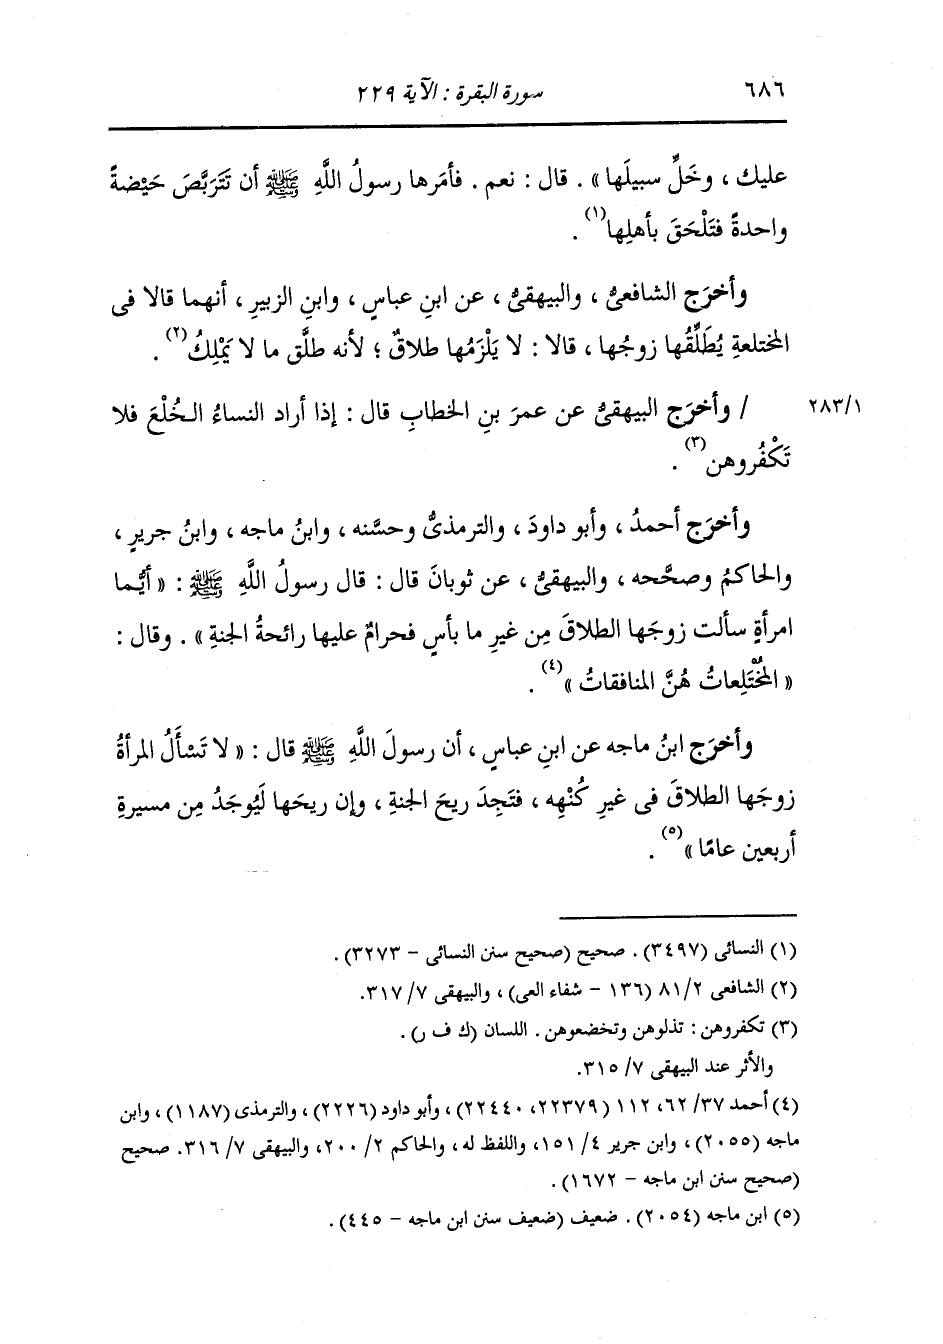 ٦٨٦
سورة البقرة : الآية ٢٢٩
عليك ، وخَلِّ سبيلَها » . قال : نعم . فأمَرها رسولُ اللَّهِ ﷺ أن تَتَربَّصَ حَيْضةً
واحدةً فتَلْحَقَ بأهلِها(١) .
وأخرَج الشافعىُّ ، والبيهقىُّ ، عن ابنِ عباسٍ ، وابنِ الزبيرِ ، أنهما قالا فى
المختلعةِ يُطَلِّقُها زوجُها ، قالا : لا يَلْزَمُها طلاقٌ ؛ لأنه طلَّق ما لا يَمْلِكُ(٢) .
٢٨٣/١ / وأخرَج البيهقىُّ عن عمرَ بنِ الخطابِ قال : إذا أراد النساءُ الخُلْعَ فلا
تَكْفُروهن(٣) .
وأخرَج أحمدُ ، وأبو داودَ ، والترمذىُّ وحسَّنه ، وابنُ ماجه ، وابنُ جريرٍ ،
والحاكمُ وصحَّحه ، والبيهقىُّ ، عن ثوبانَ قال : قال رسولُ اللَّهِ ﷺ : « أيُّما
امرأةٍ سألت زوجَها الطلاقَ مِن غيرِ ما بأسٍ فحرامٌ عليها رائحةُ الجنةِ » . وقال :
« المُخْتَلِعاتُ هُنَّ المنافقاتُ »(٤) .
وأخرَج ابنُ ماجه عن ابنِ عباسٍ ، أن رسولَ اللَّهِ ﷺ قال : « لا تَسْأَلُ المرأةُ
زوجَها الطلاقَ فى غيرِ كُنْهِه ، فتَجِدَ ريحَ الجنةِ ، وإن ريحَها لَيُوجَدُ مِن مسيرةِ
أربعين عامًا »(٥) .
(١) النسائى (٣٤٩٧) . صحيح (صحيح سنن النسائى – ٣٢٧٣) .
(٢) الشافعى ٨١/٢ (١٣٦ – شفاء العى) ، والبيهقى ٧/ ٣١٧.
(٣) تكفروهن : تذلوهن وتخضعوهن . اللسان (ك ف ر) .
والأثر عند البيهقى ٧/ ٣١٥.
(٤) أحمد ٣٧/ ٦٢، ١١٢ (٢٢٣٧٩، ٢٢٤٤٠) ، وأبو داود (٢٢٢٦) ، والترمذى (١١٨٧) ، وابن
ماجه (٢٠٥٥) ، وابن جرير ٤/ ١٥١، واللفظ له ، والحاكم ٢/ ٢٠٠، والبيهقى ٧/ ٣١٦. صحيح
(صحيح سنن ابن ماجه – ١٦٧٢) .
(٥) ابن ماجه (٢٠٥٤) . ضعيف (ضعيف سنن ابن ماجه – ٤٤٥) .